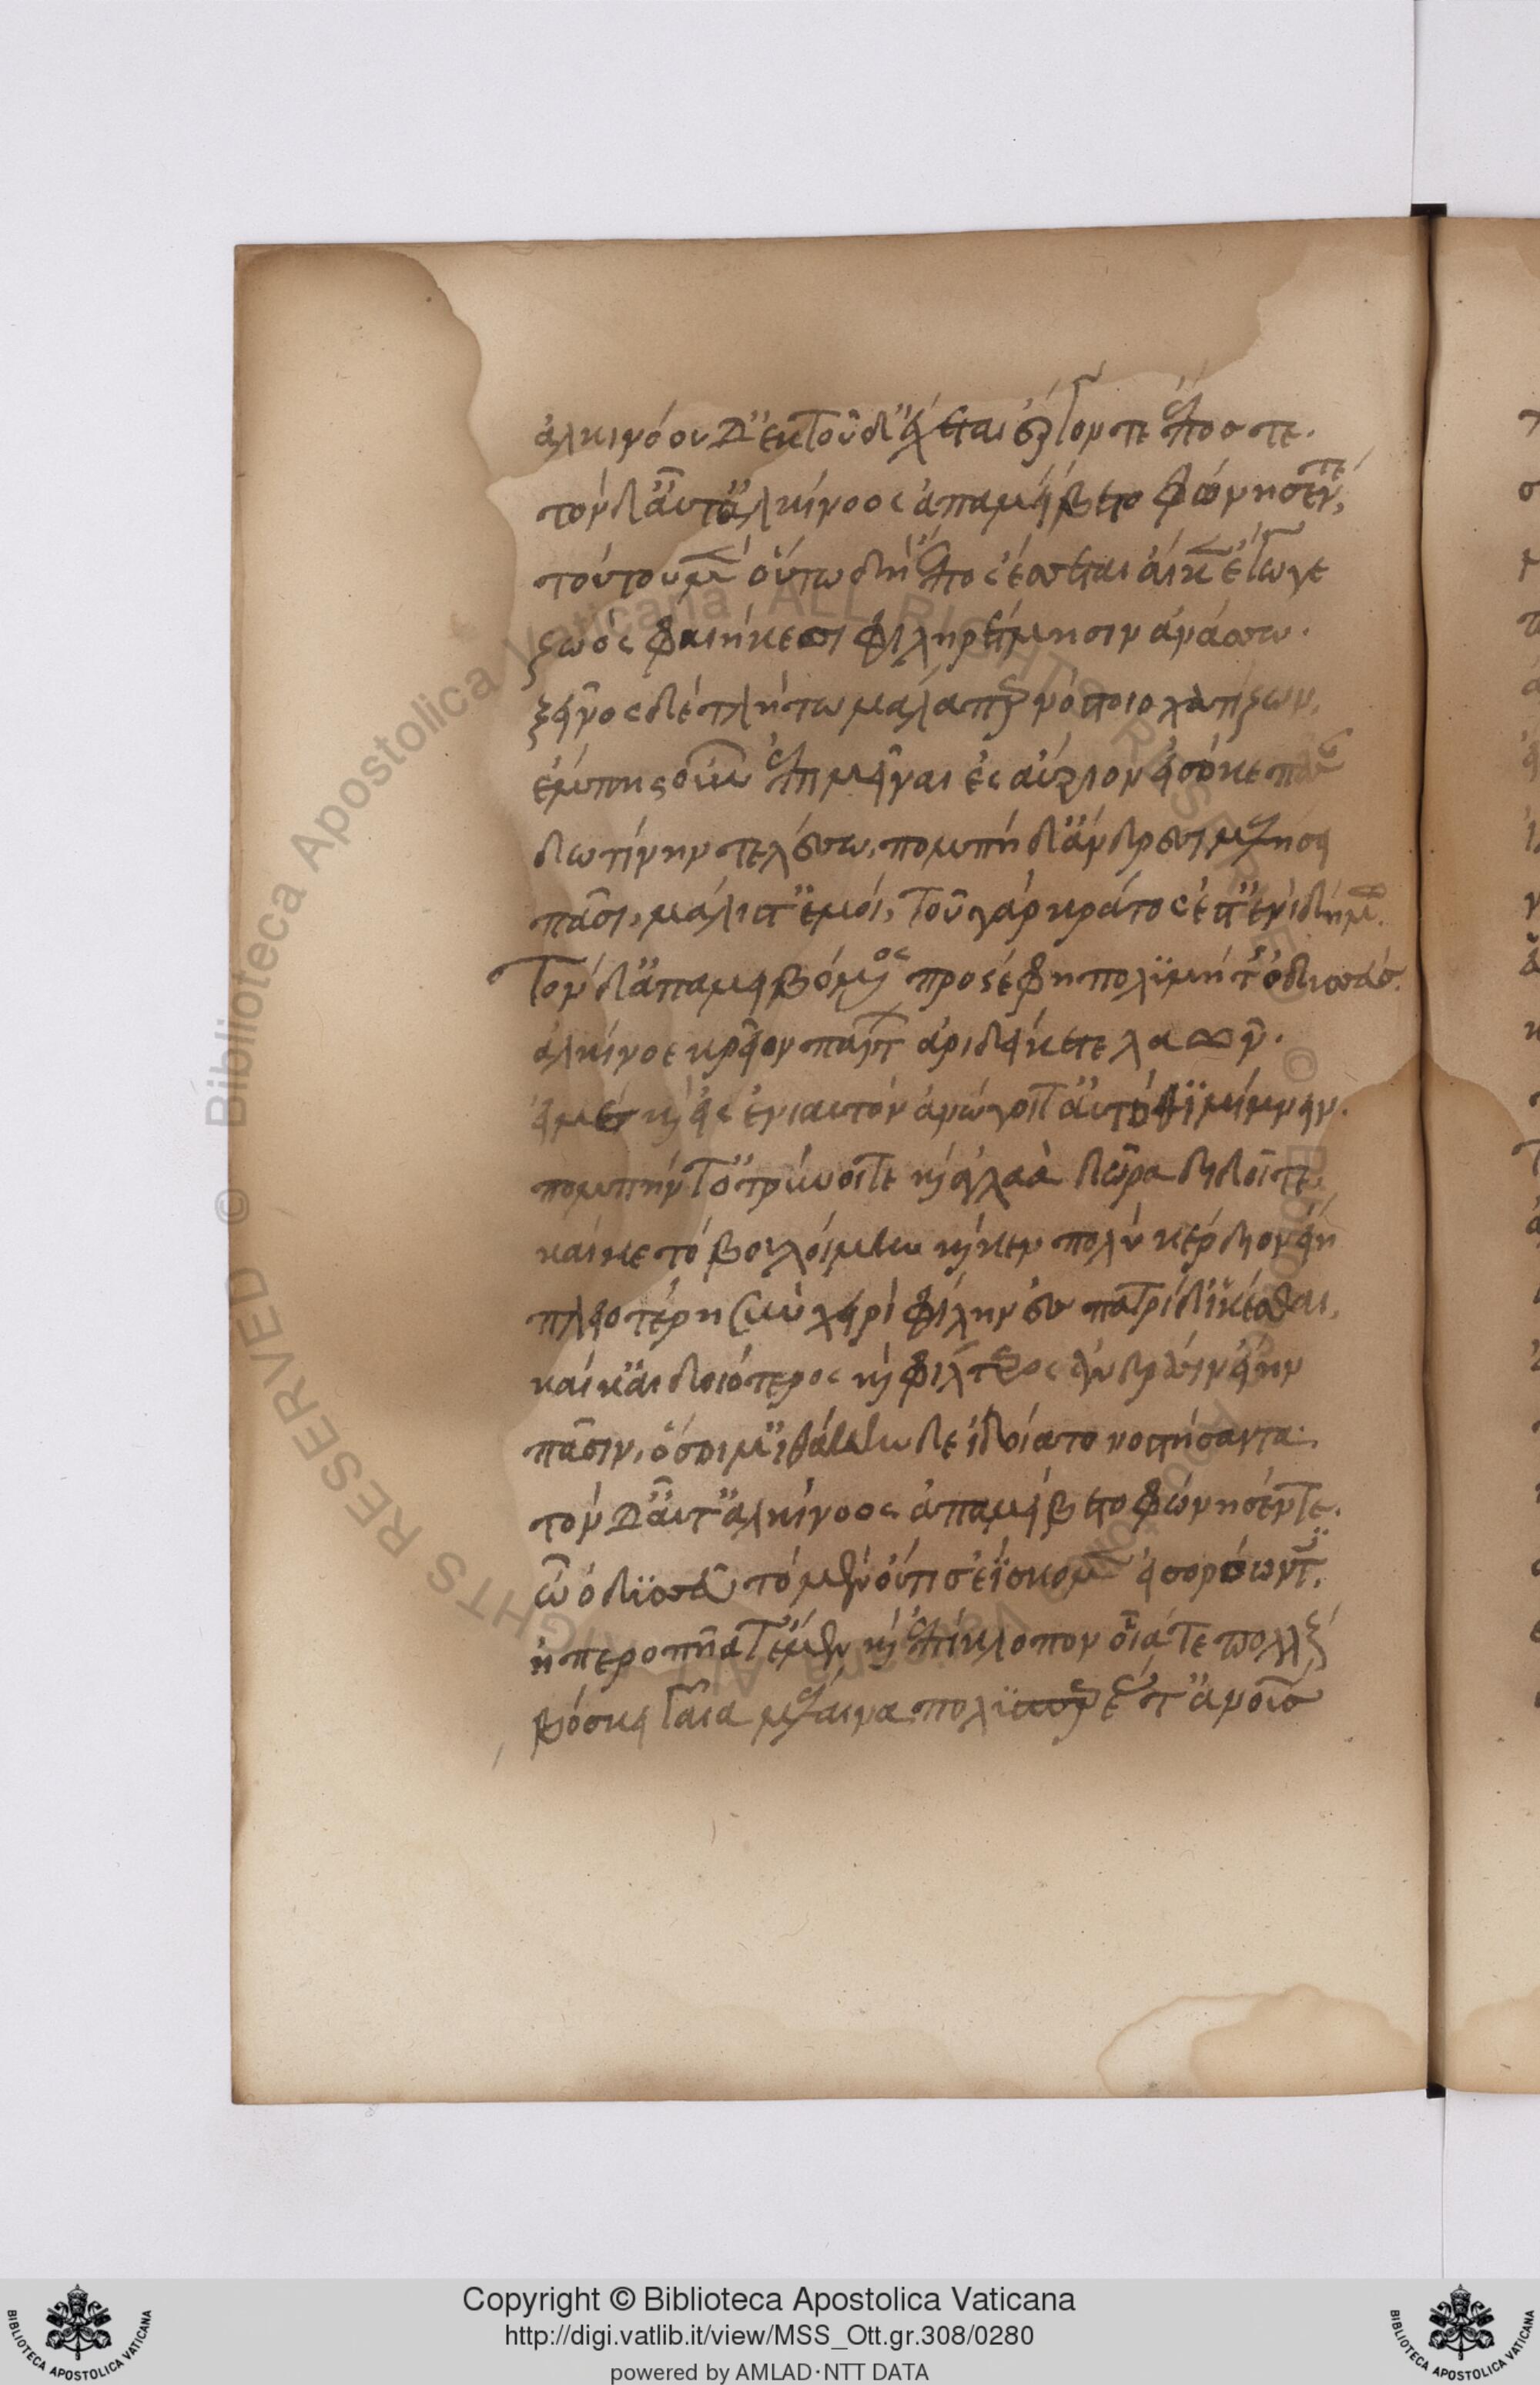 ἀλκινόου δ' ἐκ τοῦδ' ἔχεται ἔργον τε ἔπος τε.
τὸν δ' αὖτ' ἀλκίνοος ἀπαμείβετο φώνησέν τε,
τοῦτο μὲν οὕτω δὴ ἔπος ἔσσεται αἴ κεν ἔγωγε
ζωὸς φαιήκεσσι φιληρέτμησιν ἀνάσσω.
ξεῖνος δὲ τλήτω μάλα περ νόστοιο χατίζων,
ἔμπης οὖν ἐπιμεῖναι ἐς αὔριον εἰσόκε πᾶσαν
δωτίνην τελέσω, πομπὴ δ' ἄνδρεσσι μελήσει
πᾶσι, μάλιστ' ἐμοί, τοῦ γὰρ κράτος ἔστ' ἐνὶ δήμῳ.
Τὸν δ' ἀπαμειβόμενος προσέφη πολύμητις ὀδυσσεύς.
ἀλκίνοε κρεῖον πάντων ἀριδείκετε λαῶν.
εἴ με καὶ εἰς ἐνιαυτὸν ἀνώγοιτ' αὐτόθι μίμνειν.
πομπήν τ' ὀτρύνοιτε καὶ ἀγλαὰ δῶρα διδοῖτε
καί κε τὸ βουλοίμην καί κεν πολὺ κέρδιον εἴη
πλειοτέρῃ σὺν χειρὶ φίλην ἐς πατρίδ' ἱκέσθαι,
καί κ' αἰδοιότερος καὶ φίλτερος ἀνδράσιν εἴην
πᾶσιν, ὅσοι μ' ἰθάκηνδε ἰδοίατο νοστήσαντα.
τὸν δ' αὖτ' ἀλκίνοος ἀπαμείβετο φώνησέν τε.
ὦ ὀδυσεῦ τὸ μὲν οὔτι σ' ἐΐσκομεν εἰσορόωντες,
ἠπεροπῆά τ' ἔμεν καὶ ἐπίκλοπον οἷά τε πολλοὺς
βόσκει γαῖα μέλαινα πολυσπερέας τ' ἀνθρώπους
Copyright © Biblioteca Apostolica Vaticana
http://digi.vatlib.it/view/MSS_Ott.gr.308/0280
powered by AMLAD·NTT DATA